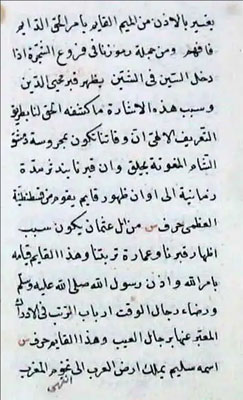 يفسير بالاذن من الميم القايم بامر الحق الدايم
فافهم ومن جملة رموزنا في فروع الشجرة اذا
دخل السين في الشين يظهر قبر محيي الدين
وسبب هذه الاشارة ما كشفه الحق لنا بطريق
التعريف الالهي ان وفاتنا تكون بمحروسة دمشق
الشام المنعوتة بجلق وان قبرنا يندثر مدة
زمانية الى اوان ظهور قايم يقوم من قسطنطنية
العظمى حرف س من ال عثمان يكون سبب
اظهار قبرنا وعمارة تربتنا وهذا القايم قيامه
بامر الله واذن رسول الله صلى الله عليه وسلم
ورضاء رجال الوقت ارباب الرتب في
المعبر عنها برجال الغيب وهذا القايم حرف س
اسمه سليم يملك ارض العرب الى تخوم المغرب
انتهى